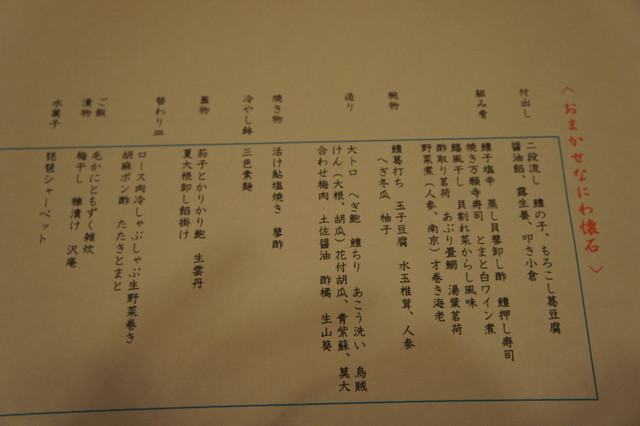 〈おまかせなにわ懐石〉
付出し
二段流し 鱧の子、もろこし葛豆腐
醤油餡、露生姜、叩き小倉
組み肴
鱧子塩辛 蒸し貝蓼卸し酢 鱧押し寿司
焼き万願寺寿司 とまと白ワイン煮
鱚風干し 貝割れ菜からし風味
酢取り茗荷 あぶり畳鰯 湯葉茗荷
野菜煮(人参、南京)才巻き海老
椀物
鱧葛打ち 玉子豆腐 水玉椎茸、人参
へぎ冬瓜 柚子
造り
大トロ へぎ鮑 鱧ちり あこう洗い 烏賊
けん(大根、胡瓜)花付胡瓜、青紫蘇、莫大
合わせ梅肉 土佐醤油 酢橘 生山葵
焼き物
活け鮎塩焼き 蓼酢
冷やし鉢
三色素麺
蓋物
茄子とかりかり鮑 生雲丹
夏大根卸し餡掛け
替わり皿
ロース肉冷しゃぶしゃぶ生野菜巻き
胡麻ポン酢 たたきとまと
ご飯
毛かにともずく雑炊
漬物
梅干し 糠漬け 沢庵
水菓子
琵琶シャーベット